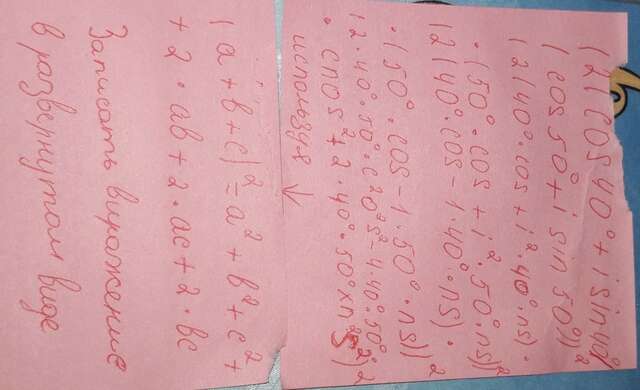 (2(cos 40° + i sin 40°)
(cos 50° + i sin 50°))²
(2(40°·cos + i²·40°·ns)·
·(50°·cos + i²·50°·ns))²
(2(40°·cos - 1·40°·ns)·
·(50°·cos - 1·50°·ns))²
(2·40°·50°·c²o²s² - 4·40°·50°·
используя ↓
(a + b + c)² = a² + b² + c² +
+ 2·ab + 2·ac + 2·bc
Записать выражение
в развернутом виде